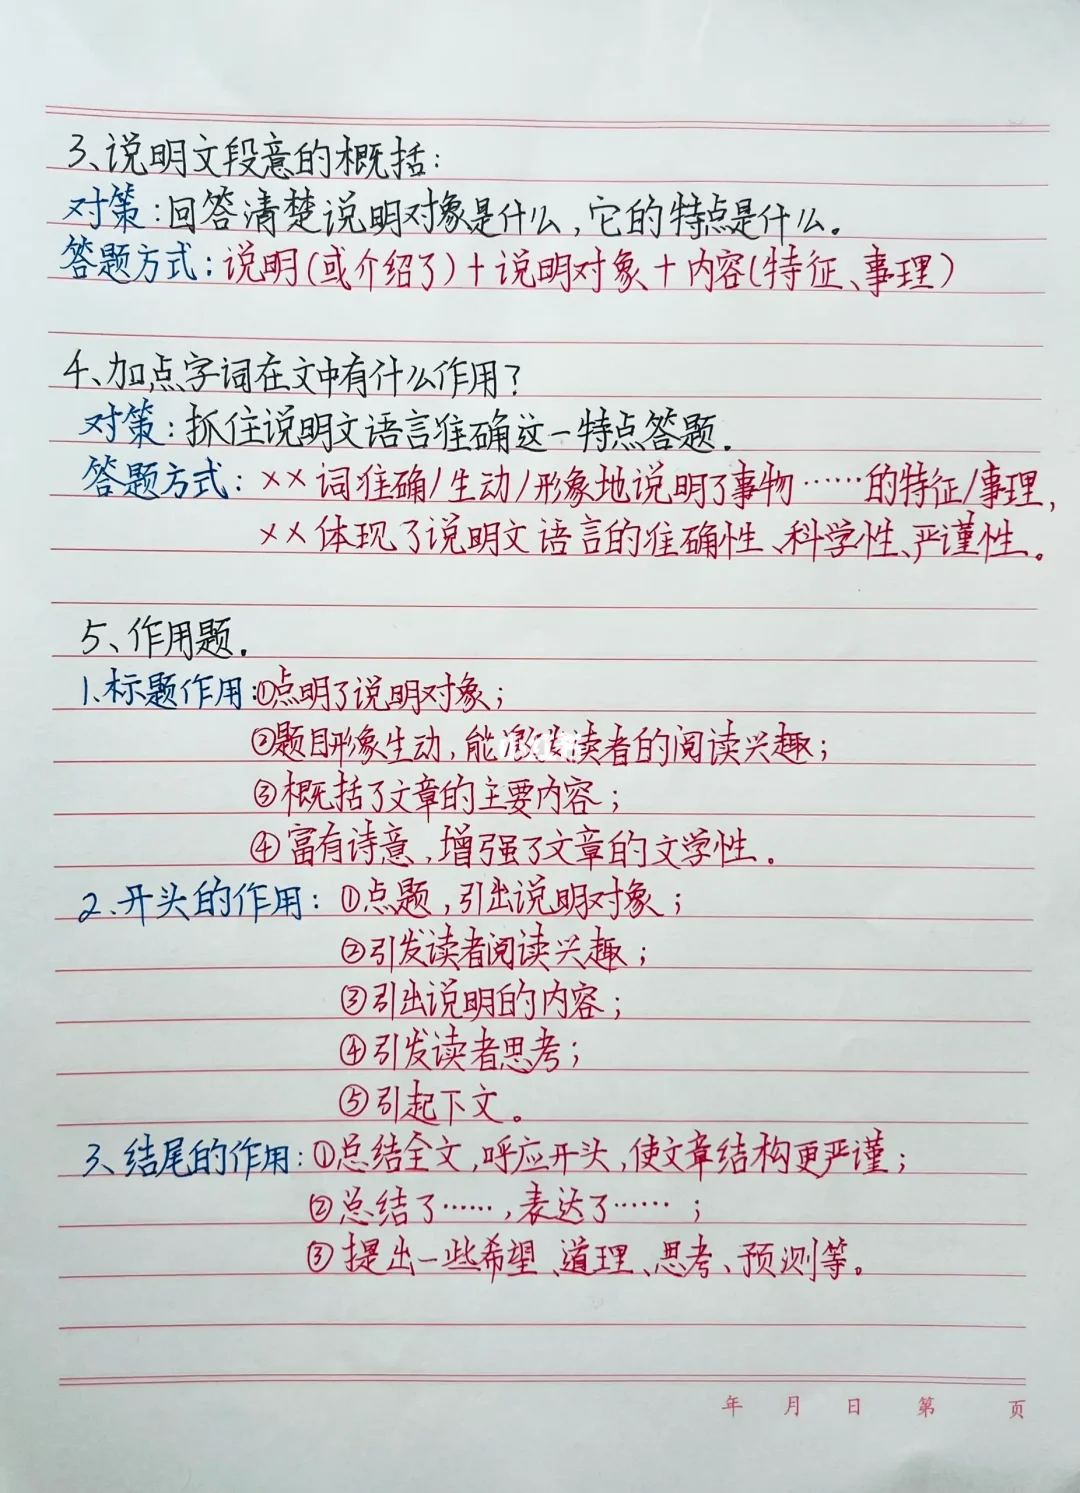 3、说明文段意的概括：
对策：回答清楚说明对象是什么，它的特点是什么。
答题方式：说明(或介绍了)＋说明对象＋内容(特征、事理)
4、加点字词在文中有什么作用？
对策：抓住说明文语言准确这一特点答题.
答题方式：××词准确/生动/形象地说明了事物……的特征/事理，
××体现了说明文语言的准确性、科学性、严谨性。
5、作用题.
1.标题作用：①点明了说明对象；
②题目形象生动，能读者的阅读兴趣；
③概括了文章的主要内容；
④富有诗意，增强了文章的文学性。
2.开头的作用：①点题，引出说明对象；
②引发读者阅读兴趣；
③引出说明的内容；
④引发读者思考；
⑤引起下文。
3、结尾的作用：①总结全文，呼应开头，使文章结构更严谨；
②总结了……，表达了……；
③提出一些希望、道理、思考、预测等。
年 月 日 第 页